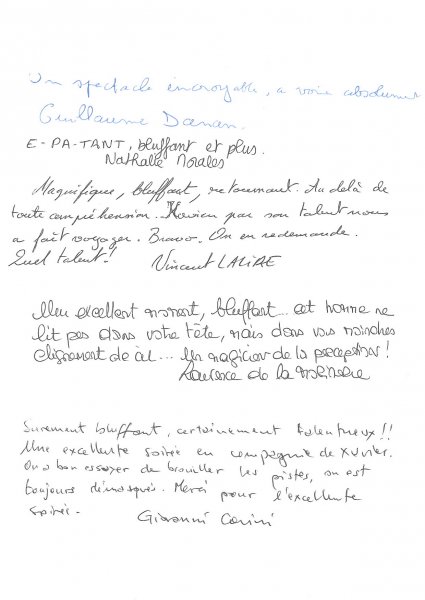 Un spectacle incroyable, a voir absolument
Guillaume
E-PA-TANT, bluffant et plus.
Nathalie Morales
Magnifique, bluffant, retournant. Au delà de
toute compréhension. Xavier par son talent nous
a fait voyager. Bravo. On en redemande.
Quel talent! Vincent
Un excellent moment, bluffant... cet homme ne
lit pas dans votre tête, mais dans vos moindres
clignement de œil... Un magicien de la perception!
Laurence de la
Surement bluffant, certainement talentueux!!
Une excellente soirée en compagnie de Xavier.
On a bon essayer de brouiller les pistes, on est
toujours démasqués. Merci pour l'excellente
soirée. Giovanni